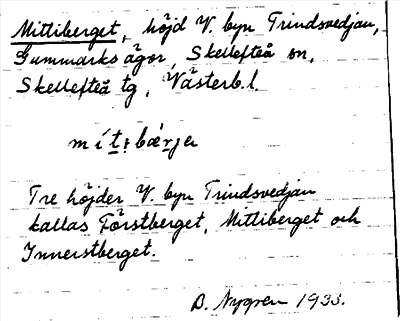 Mittiberget, höjd V. byn Trindsvedjan,
Gummarks ägor, Skellefteå sn,
Skellefteå tg, Västerb.l.
mítːbærjer
Tre höjder V. byn Trindsvedjan
kallas Förstberget, Mittiberget och
Innerstberget.
B. Nygren 1933.